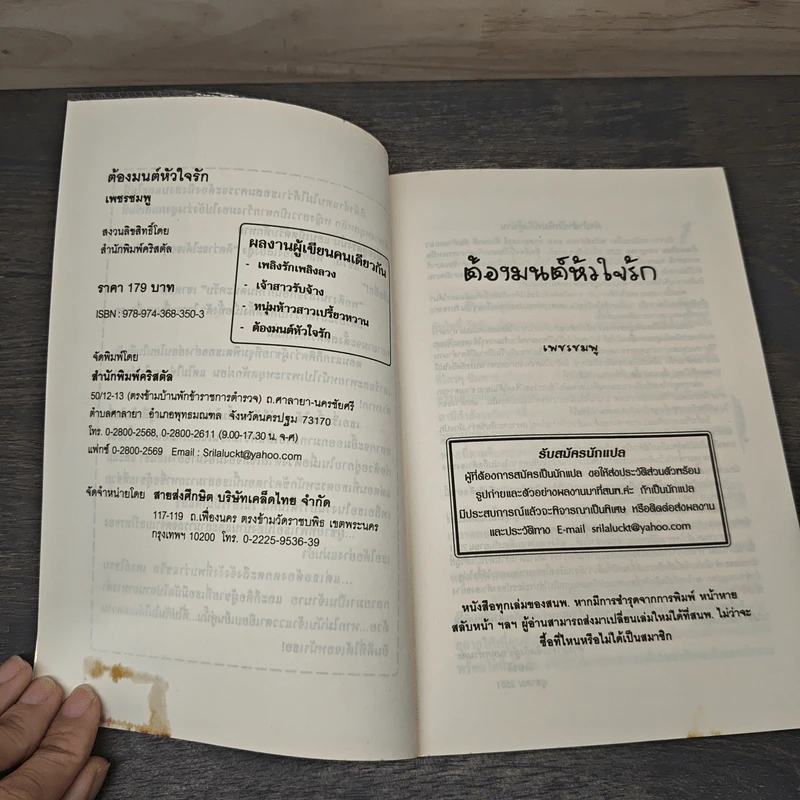 ต้องมนต์หัวใจรัก
เพชรชมพู
สงวนลิขสิทธิ์โดย
สำนักพิมพ์คริสตัล
ราคา 179 บาท
ISBN : 978-974-368-350-3
ผลงานผู้เขียนคนเดียวกัน
- เพลิงรักเพลิงลวง
- เจ้าสาวรับจ้าง
- หนุ่มห้าวสาวเปรี้ยวหวาน
- ต้องมนต์หัวใจรัก
จัดพิมพ์โดย
สำนักพิมพ์คริสตัล
50/12-13 (ตรงข้ามบ้านพักข้าราชการตำรวจ) ถ.ศาลายา-นครชัยศรี
ตำบลศาลายา อำเภอพุทธมณฑล จังหวัดนครปฐม 73170
โทร. 0-2800-2568, 0-2800-2611 (9.00-17.30 น. จ-ศ)
แฟกซ์ 0-2800-2569 Email : Srilaluckt@yahoo.com
จัดจำหน่ายโดย สายส่งศึกษิต บริษัทเคล็ดไทย จำกัด
117-119 ถ.เฟื่องนคร ตรงข้ามวัดราชบพิธ เขตพระนคร
กรุงเทพฯ 10200 โทร. 0-2225-9536-39
ต้องมนต์หัวใจรัก
เพชรชมพู
รับสมัครนักแปล
ผู้ที่ต้องการสมัครเป็นนักแปล ขอให้ส่งประวัติส่วนตัวพร้อม
รูปถ่ายและตัวอย่างผลงานมาที่สนพ.ค่ะ ถ้าเป็นนักแปล
มีประสบการณ์แล้วจะพิจารณาเป็นพิเศษ หรือติดต่อส่งผลงาน
และประวัติทาง E-mail srilaluckt@yahoo.com
หนังสือทุกเล่มของสนพ. หากมีการชำรุดจากการพิมพ์ หน้าหาย
สลับหน้า ฯลฯ ผู้อ่านสามารถส่งมาเปลี่ยนเล่มใหม่ได้ที่สนพ. ไม่ว่าจะ
ซื้อที่ไหนหรือไม่ได้เป็นสมาชิก